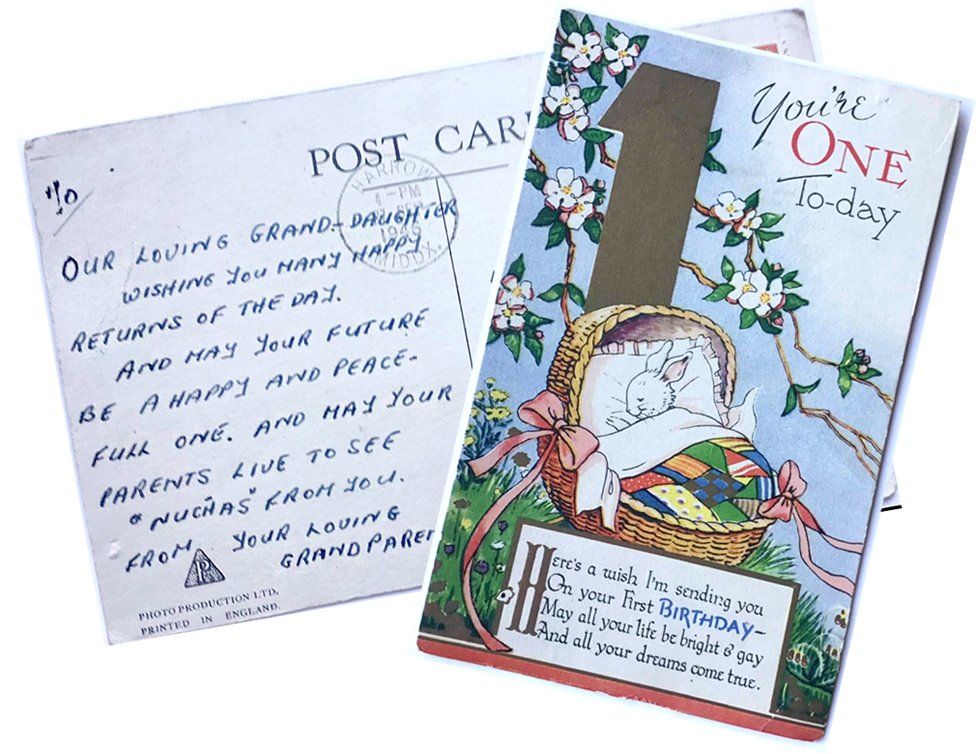 POST CAR
HARROW
4 - PM
1946
MIDDX.
To
OUR LOVING GRAND-DAUGHTER
WISHING YOU MANY HAPPY
RETURNS OF THE DAY.
AND MAY YOUR FUTURE
BE A HAPPY AND PEACE-
FULL ONE. AND MAY YOUR
PARENTS LIVE TO SEE
"NUCHAS" FROM YOU.
FROM YOUR LOVING
GRANDPAREN
P
PHOTO PRODUCTION LTD.
PRINTED IN ENGLAND.
1
You're
ONE
To-day
Here's a wish I'm sending you
On your First BIRTHDAY-
May all your life be bright & gay
And all your dreams come true.